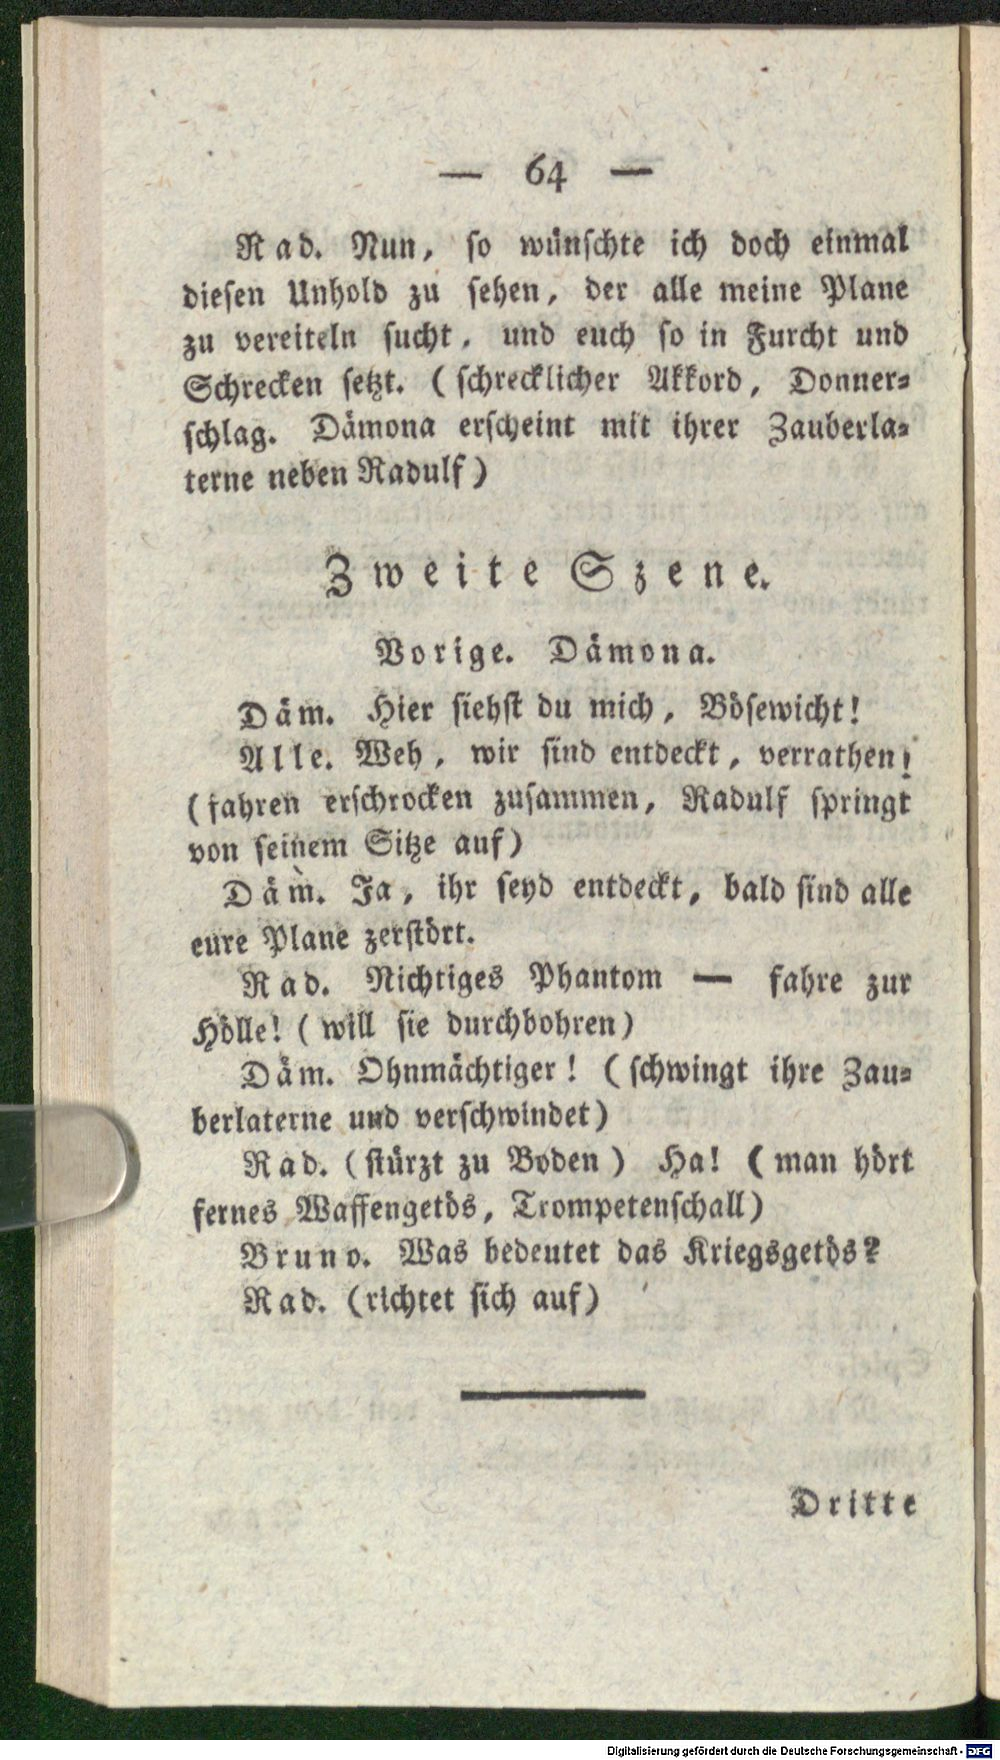 — 64 —
Rad. Nun, so wünschte ich doch einmal
diesen Unhold zu sehen, der alle meine Plane
zu vereiteln sucht, und euch so in Furcht und
Schrecken setzt. (schrecklicher Akkord, Donner-
schlag. Dämona erscheint mit ihrer Zauberla-
terne neben Radulf)
Zweite Szene.
Vorige. Dämona.
Däm. Hier siehst du mich, Bösewicht!
Alle. Weh, wir sind entdeckt, verrathen!
(fahren erschrocken zusammen, Radulf springt
von seinem Sitze auf)
Däm. Ja, ihr seyd entdeckt, bald sind alle
eure Plane zerstört.
Rad. Nichtiges Phantom — fahre zur
Hölle! (will sie durchbohren)
Däm. Ohnmächtiger! (schwingt ihre Zau-
berlaterne und verschwindet)
Rad. (stürzt zu Boden) Ha! (man hört
fernes Waffengetös, Trompetenschall)
Bruno. Was bedeutet das Kriegsgetös?
Rad. (richtet sich auf)
Dritte
Digitalisierung gefördert durch die Deutsche Forschungsgemeinschaft - DFG